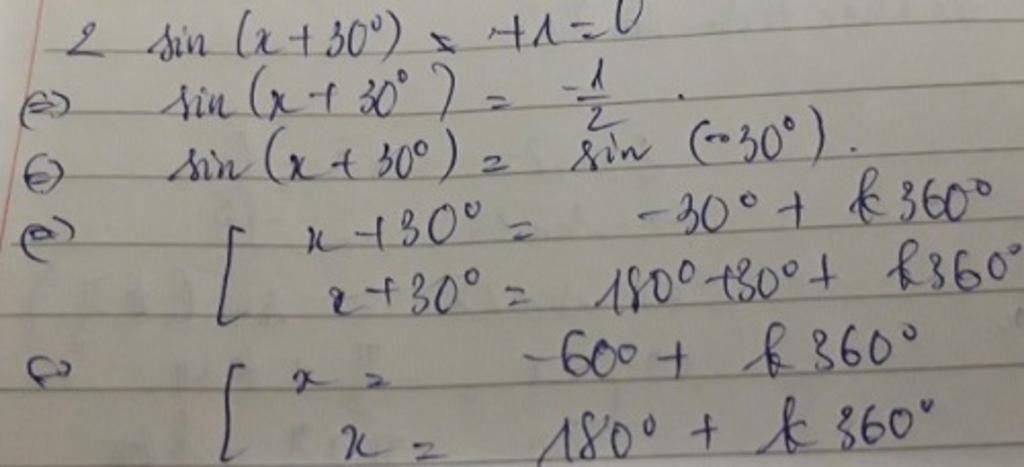 2 sin (x + 30°) +1 = 0
⇔ sin (x + 30°) = -1/2 .
⇔ sin (x + 30°) = sin (-30°) .
⇔ [ x + 30° = -30° + k360°
x + 30° = 180° + 30° + k360°
⇔ [ x = -60° + k360°
x = 180° + k360°